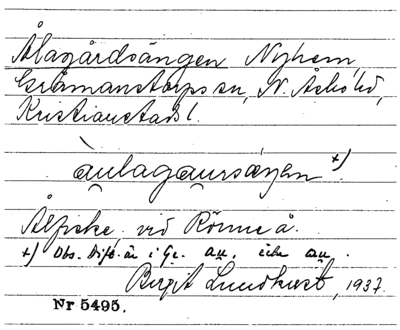 Ålagårdsängen Nyhem,
Gråmanstorps sn, N. Åsbo hd,
Kristianstads l.
àulagaursæŋen +)
Ålfiske vid Rönneå.
+) Obs. Dift. är i Gr. au, icke au.
Birgit Lundkvist, 1937.
Nr 5495.